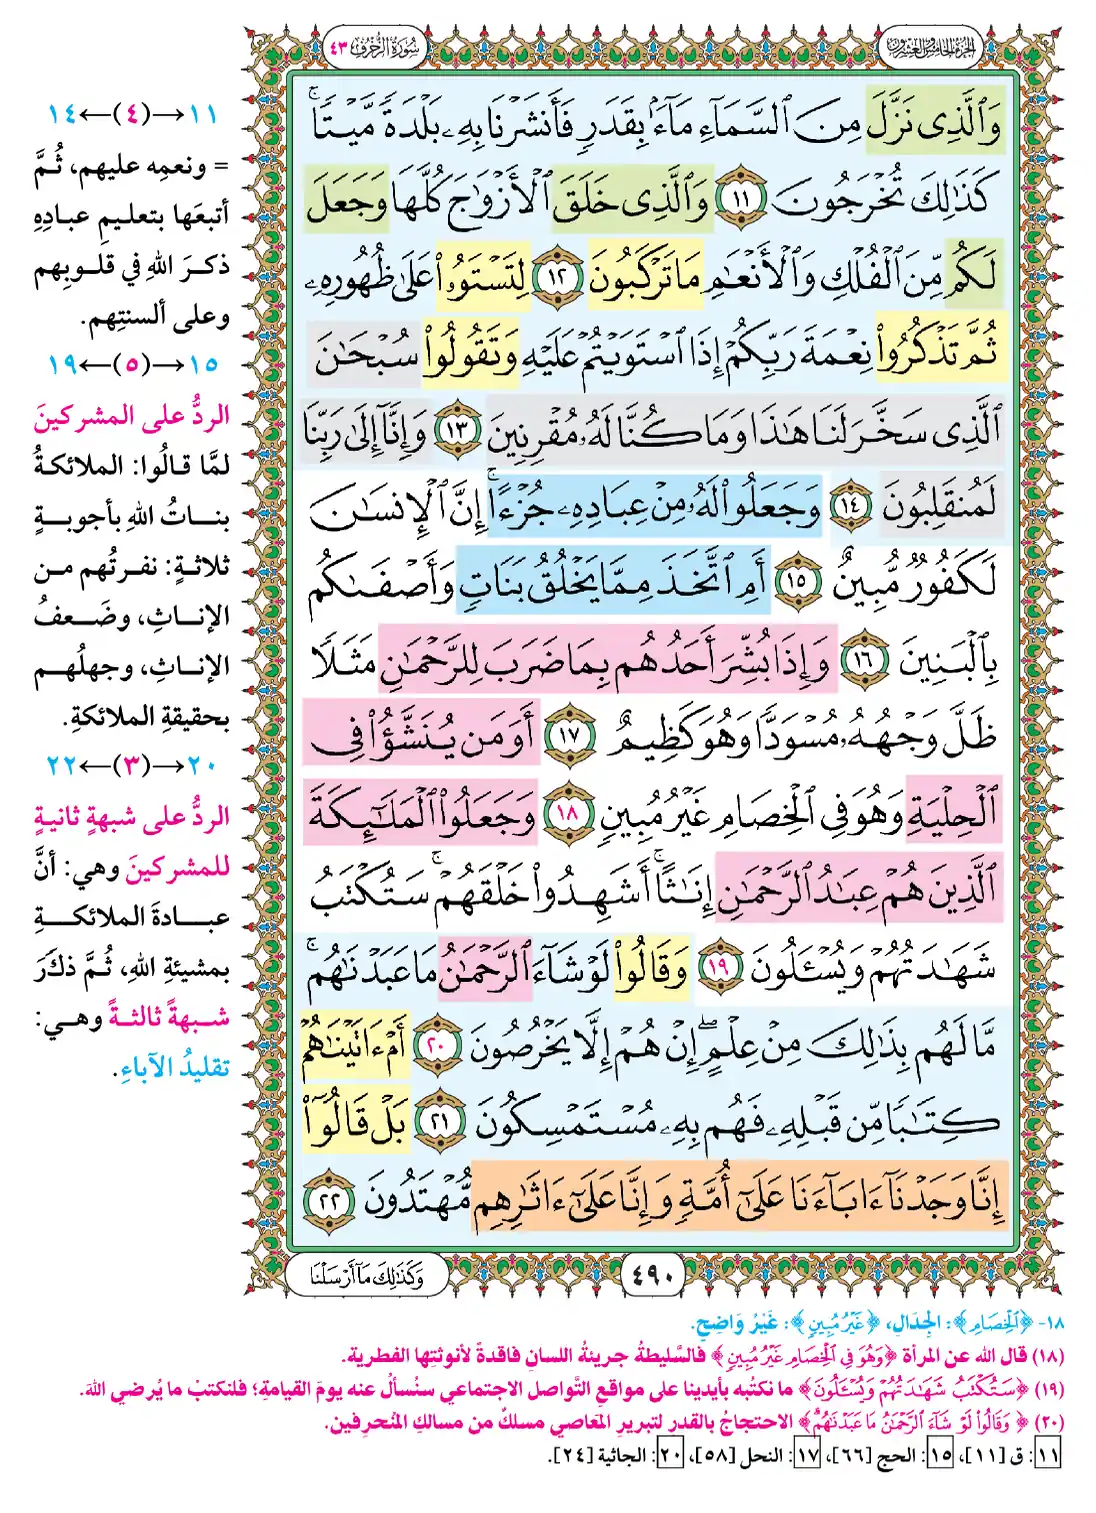 الجزء الخامس والعشرون
سورة الزخرف ٤٣
وَٱلَّذِى نَزَّلَ مِنَ ٱلسَّمَآءِ مَآءًۢ بِقَدَرٍ فَأَنشَرْنَا بِهِۦ بَلْدَةً مَّيْتًا ۚ
كَذَٰلِكَ تُخْرَجُونَ ١١ وَٱلَّذِى خَلَقَ ٱلْأَزْوَٰجَ كُلَّهَا وَجَعَلَ
لَكُم مِّنَ ٱلْفُلْكِ وَٱلْأَنْعَٰمِ مَا تَرْكَبُونَ ١٢ لِتَسْتَوُۥا۟ عَلَىٰ ظُهُورِهِۦ
ثُمَّ تَذْكُرُوا۟ نِعْمَةَ رَبِّكُمْ إِذَا ٱسْتَوَيْتُمْ عَلَيْهِ وَتَقُولُوا۟ سُبْحَٰنَ
ٱلَّذِى سَخَّرَ لَنَا هَٰذَا وَمَا كُنَّا لَهُۥ مُقْرِنِينَ ١٣ وَإِنَّآ إِلَىٰ رَبِّنَا
لَمُنقَلِبُونَ ١٤ وَجَعَلُوا۟ لَهُۥ مِنْ عِبَادِهِۦ جُزْءًا ۚ إِنَّ ٱلْإِنسَٰنَ
لَكَفُورٌ مُّبِينٌ ١٥ أَمِ ٱتَّخَذَ مِمَّا يَخْلُقُ بَنَاتٍ وَأَصْفَىٰكُم
بِٱلْبَنِينَ ١٦ وَإِذَا بُشِّرَ أَحَدُهُم بِمَا ضَرَبَ لِلرَّحْمَٰنِ مَثَلًا
ظَلَّ وَجْهُهُۥ مُسْوَدًّا وَهُوَ كَظِيمٌ ١٧ أَوَمَن يُنَشَّؤُا۟ فِى
ٱلْحِلْيَةِ وَهُوَ فِى ٱلْخِصَامِ غَيْرُ مُبِينٍ ١٨ وَجَعَلُوا۟ ٱلْمَلَٰٓئِكَةَ
ٱلَّذِينَ هُمْ عِبَٰدُ ٱلرَّحْمَٰنِ إِنَٰثًا ۚ أَشَهِدُوا۟ خَلْقَهُمْ ۚ سَتُكْتَبُ
شَهَٰدَتُهُمْ وَيُسْـَٔلُونَ ١٩ وَقَالُوا۟ لَوْ شَآءَ ٱلرَّحْمَٰنُ مَا عَبَدْنَٰهُم ۗ
مَّا لَهُم بِذَٰلِكَ مِنْ عِلْمٍ ۖ إِنْ هُمْ إِلَّا يَخْرُصُونَ ٢٠ أَمْ ءَاتَيْنَٰهُمْ
كِتَٰبًا مِّن قَبْلِهِۦ فَهُم بِهِۦ مُسْتَمْسِكُونَ ٢١ بَلْ قَالُوٓا۟
إِنَّا وَجَدْنَآ ءَابَآءَنَا عَلَىٰٓ أُمَّةٍ وَإِنَّا عَلَىٰٓ ءَاثَٰرِهِم مُّهْتَدُونَ ٢٢
٤٩٠
وَكَذَٰلِكَ مَآ أَرْسَلْنَا
١١→(٤)←١٤
= ونعمِه عليهم، ثُمَّ
أتبعَها بتعليمِ عبادِهِ
ذكرَ اللهِ في قلوبِهم
وعلى ألسنتِهم.
١٥→(٥)←١٩
الردُّ على المشركينَ
لمَّا قالُوا: الملائكةُ
بناتُ اللهِ بأجوبةٍ
ثلاثةٍ: نفرتُهم من
الإناثِ، وضَعفُ
الإناثِ، وجهلُهم
بحقيقةِ الملائكةِ.
٢٠→(٣)←٢٢
الردُّ على شبهةٍ ثانيةٍ
للمشركينَ وهي: أنَّ
عبادةَ الملائكةِ
بمشيئةِ اللهِ، ثُمَّ ذكَرَ
شبهةً ثالثةً وهي:
تقليدُ الآباءِ.
١٨- ﴿ٱلْخِصَامِ﴾: الجِدَالِ، ﴿غَيْرُ مُبِينٍ﴾: غَيْرُ وَاضِحٍ.
(١٨) قال الله عن المرأة ﴿وَهُوَ فِى ٱلْخِصَامِ غَيْرُ مُبِينٍ﴾ فالسَّليطةُ جريئةُ اللسانِ فاقدةٌ لأنوثتِها الفطرية.
(١٩) ﴿سَتُكْتَبُ شَهَٰدَتُهُمْ وَيُسْـَٔلُونَ﴾ ما نكتُبه بأيدينا على مواقعِ التَّواصل الاجتماعي سنُسألُ عنه يومَ القيامةِ؛ فلنكتبْ ما يُرضي اللهَ.
(٢٠) ﴿وَقَالُوا۟ لَوْ شَآءَ ٱلرَّحْمَٰنُ مَا عَبَدْنَٰهُم ۗ﴾ الاحتجاجُ بالقدر لتبريرِ المَعاصي مسلكٌ من مسالكِ المُنحرفين.
١١: ق [١١]، ١٥: الحج [٦٦]، ١٧: النحل [٥٨]، ٢٠: الجاثية [٢٤].